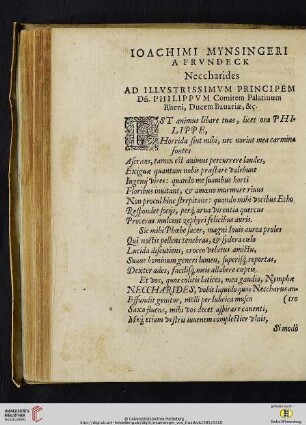 IOACHIMI MYNSINGERI
A FRVNDECK
Neccharides
AD ILLVSTRISSIMVM PRINCIPEM
Dñ. PHILIPPVM Comitem Palatinum
Rheni, Ducem Bauariæ, &c.
EST animus libare tuas, licet ora PHI-
LIPPE,
Horrida sint mihi, nec norint mea carmina
fontes
Ascræos, tamen est animus percurrere laudes,
Exiguæ quantum nobis præstare valebunt
Ingenij vires: quando me suauibus horti
Floribus inuitant, & amœno murmure riuus
Non procul hinc strepitans: quando mihi vocibus Echo
Respondet socijs, perq́; arua virentia quercus
Proceras mulcent zephyri felicibus auris.
Sic mihi Phœbe faues, magni Iouis aurea proles
Qui mœstis pellens tenebras, & sydera cœlo
Lucida distutiens, croceo velatus amictu,
Suaue hominum generi lumen, superisq́; reportas,
Dexter ades, facilisq́; meis allabere cœptis.
Et vos, quos colitis latices, mea gaudia, Nymphæ
NECCHARIDES, vobis liquido quos Neccharus an-
Effundit genitor, molli per lubrica musco (tro
Saxa fluens, mihi vos decet aspirare canenti,
Meq́; etiam vestris iuuenem complectier vlnis,
Si modò